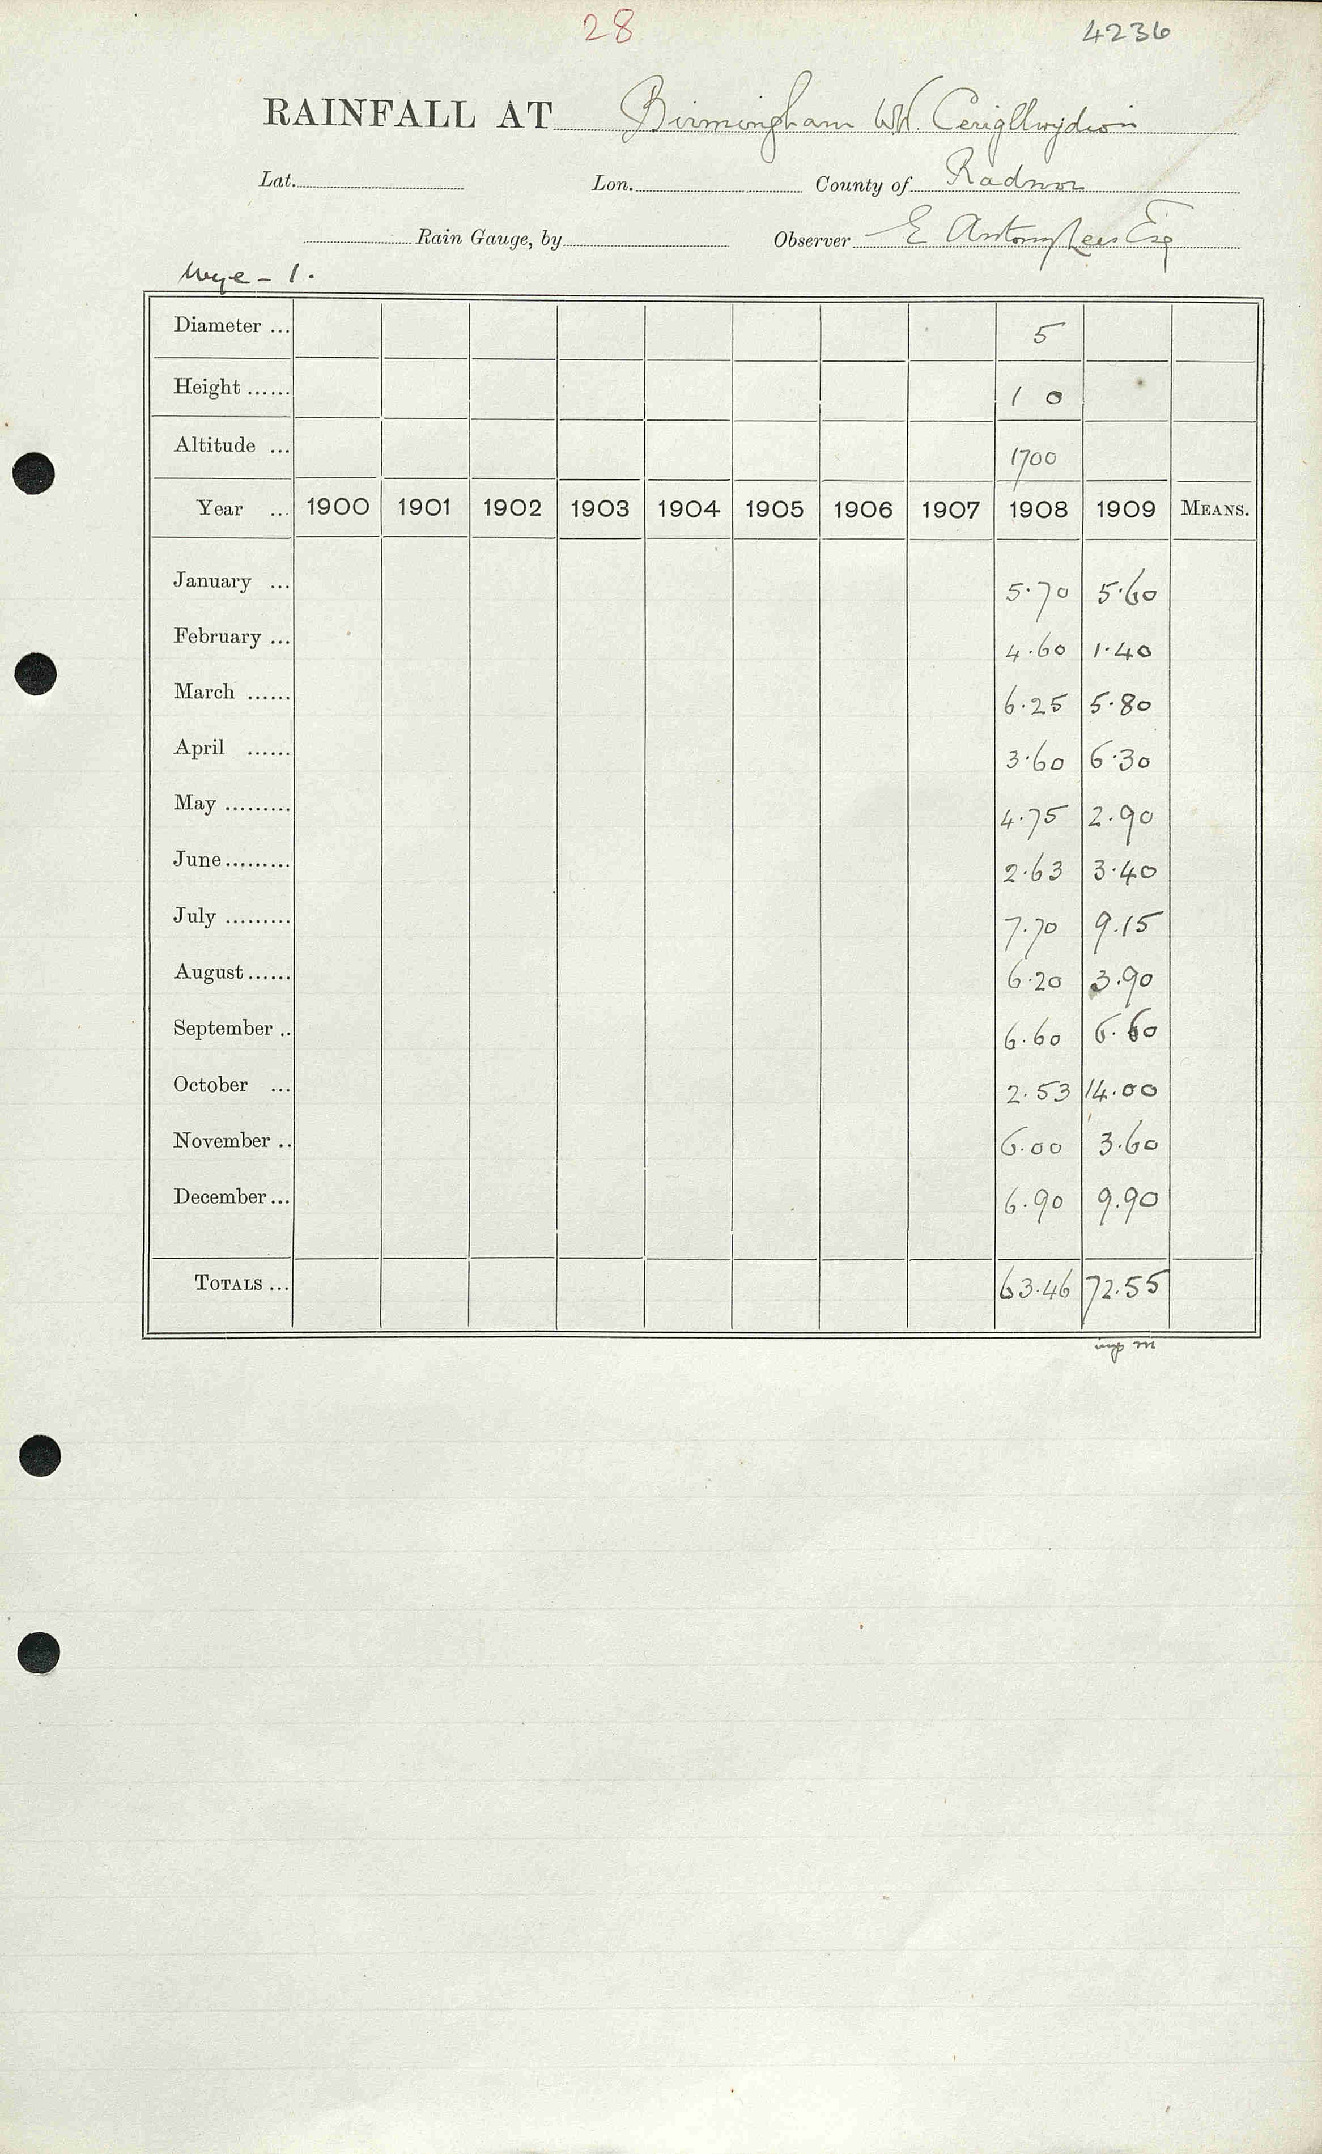 28 4236
RAINFALL AT Birmingham WW. Cerigllwydion
Lat. Lon. County of Radnor
Rain Gauge, by Observer E Antony Lees Esq
Wye - 1.
Diameter ... 5
Height ...... 1 0
Altitude ... 1700
Year ... 1900 1901 1902 1903 1904 1905 1906 1907 1908 1909 MEANS.
January ... 5.70 5.60
February ... 4.60 1.40
March ...... 6.25 5.80
April ...... 3.60 6.30
May ......... 4.75 2.90
June ......... 2.63 3.40
July ......... 7.70 9.15
August ...... 6.20 3.90
September .. 6.60 6.60
October ... 2.53 14.00
November .. 6.00 3.60
December ... 6.90 9.90
TOTALS ... 63.46 72.55